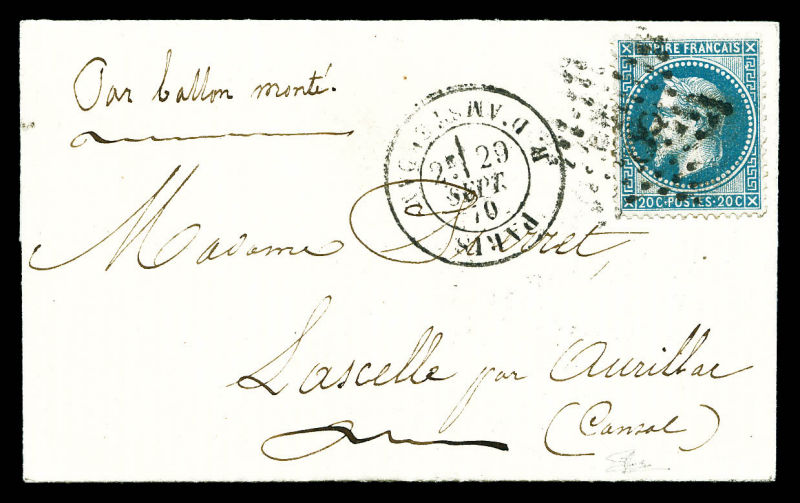 Par ballon monté.
EMPIRE FRANÇAIS
20 C · POSTES · 20 C
PARIS R. D'AMSTERDAM
29
SEPT.
70
Madame
Lascelle par Aurillac
(Cantal)